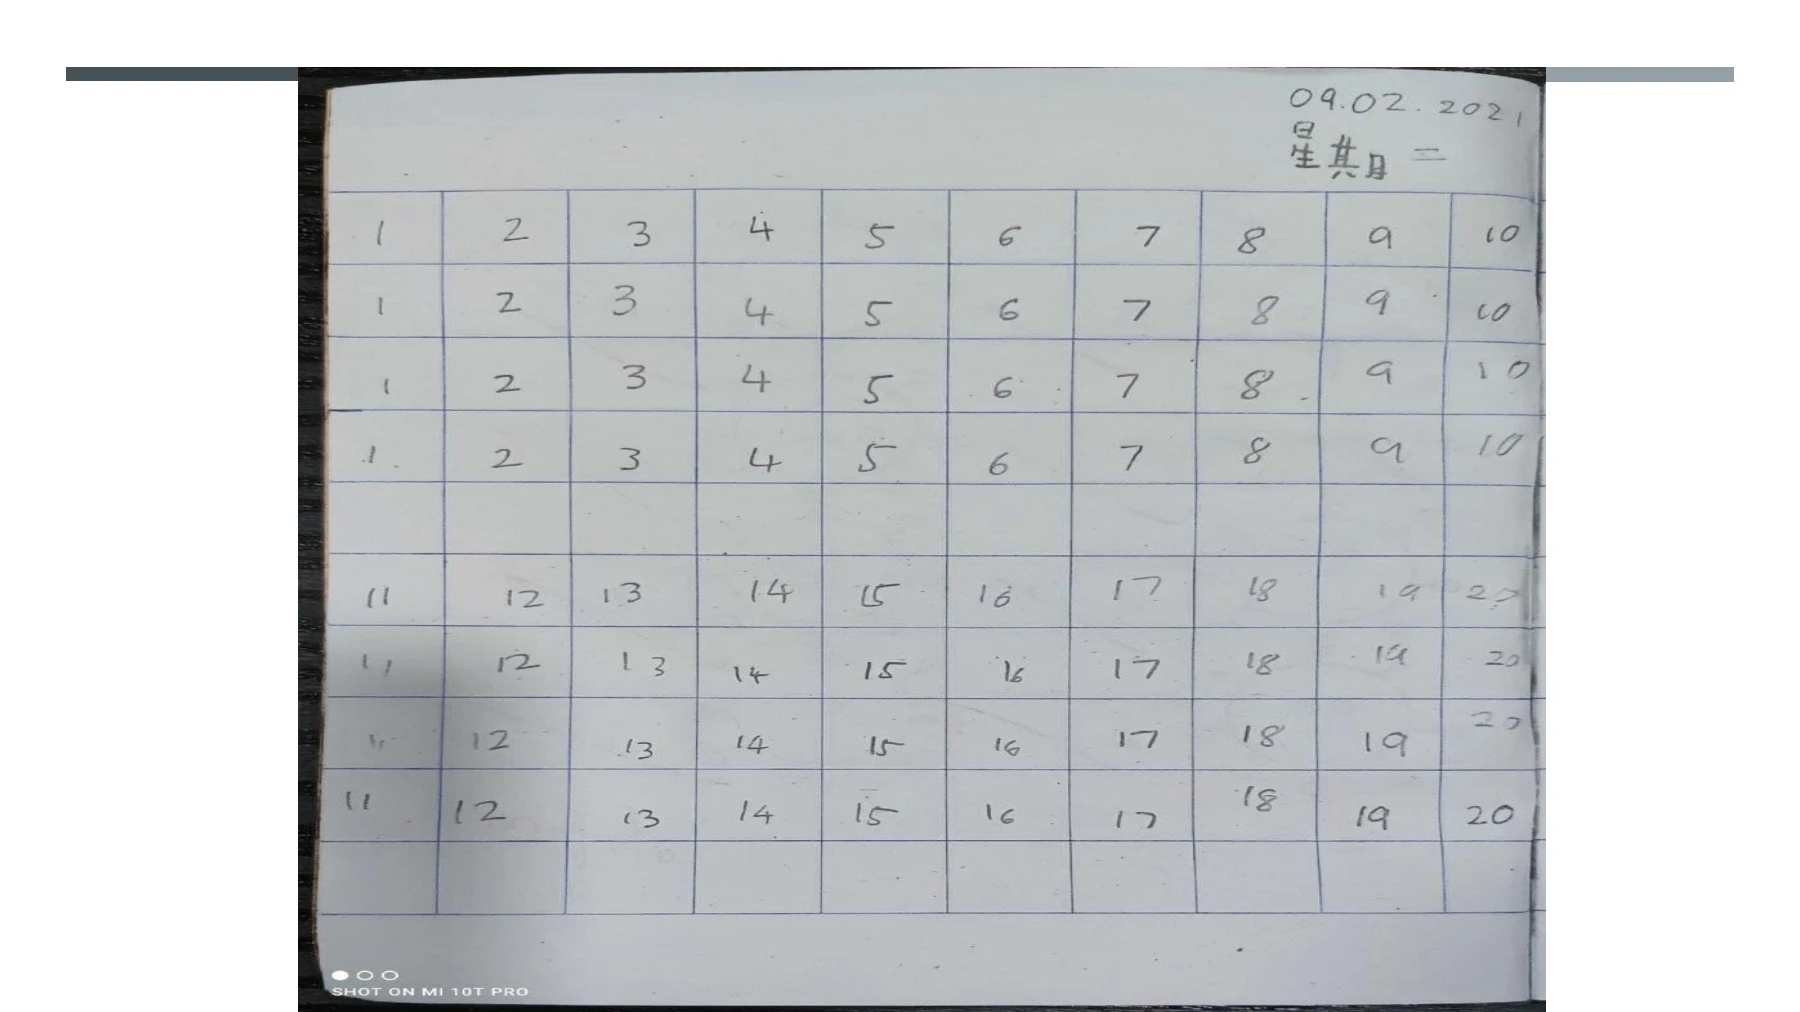 09.02.2021
星期二
1 2 3 4 5 6 7 8 9 10
1 2 3 4 5 6 7 8 9 10
1 2 3 4 5 6 7 8 9 10
1 2 3 4 5 6 7 8 9 10
11 12 13 14 15 16 17 18 19 20
11 12 13 14 15 16 17 18 19 20
11 12 13 14 15 16 17 18 19 20
11 12 13 14 15 16 17 18 19 20
SHOT ON MI 10T PRO